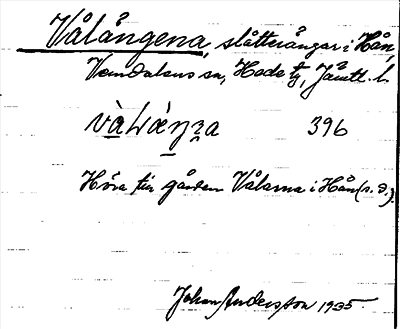 Vålångena, slåtterängar i Hån,
Vemdalens sn, Hede tg, Jämtl. l.
396
Höra till gården Vålarna i Hån (s. d.).
Johan Andersson 1935